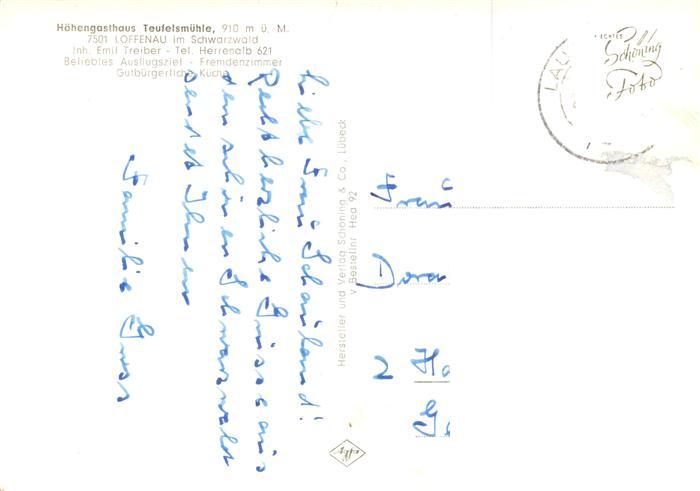 Höhengasthaus Teufelsmühle, 910 m ü. M.
7501 LOFFENAU im Schwarzwald
Inh. Emil Treiber - Tel. Herrenalb 621
Beliebtes Ausflugsziel - Fremdenzimmer
Gutbürgerliche Küche
Liebe Frau Schauland!
Recht herzliche Grüsse aus
dem schönen Schwarzwald
sendet Ihnen
Familie
Hersteller und Verlag Schöning & Co., Lübeck
Bestellnr. Hea 92
ECHTES
Schöning
Foto
LAU
Frau
Dora
2 Ha